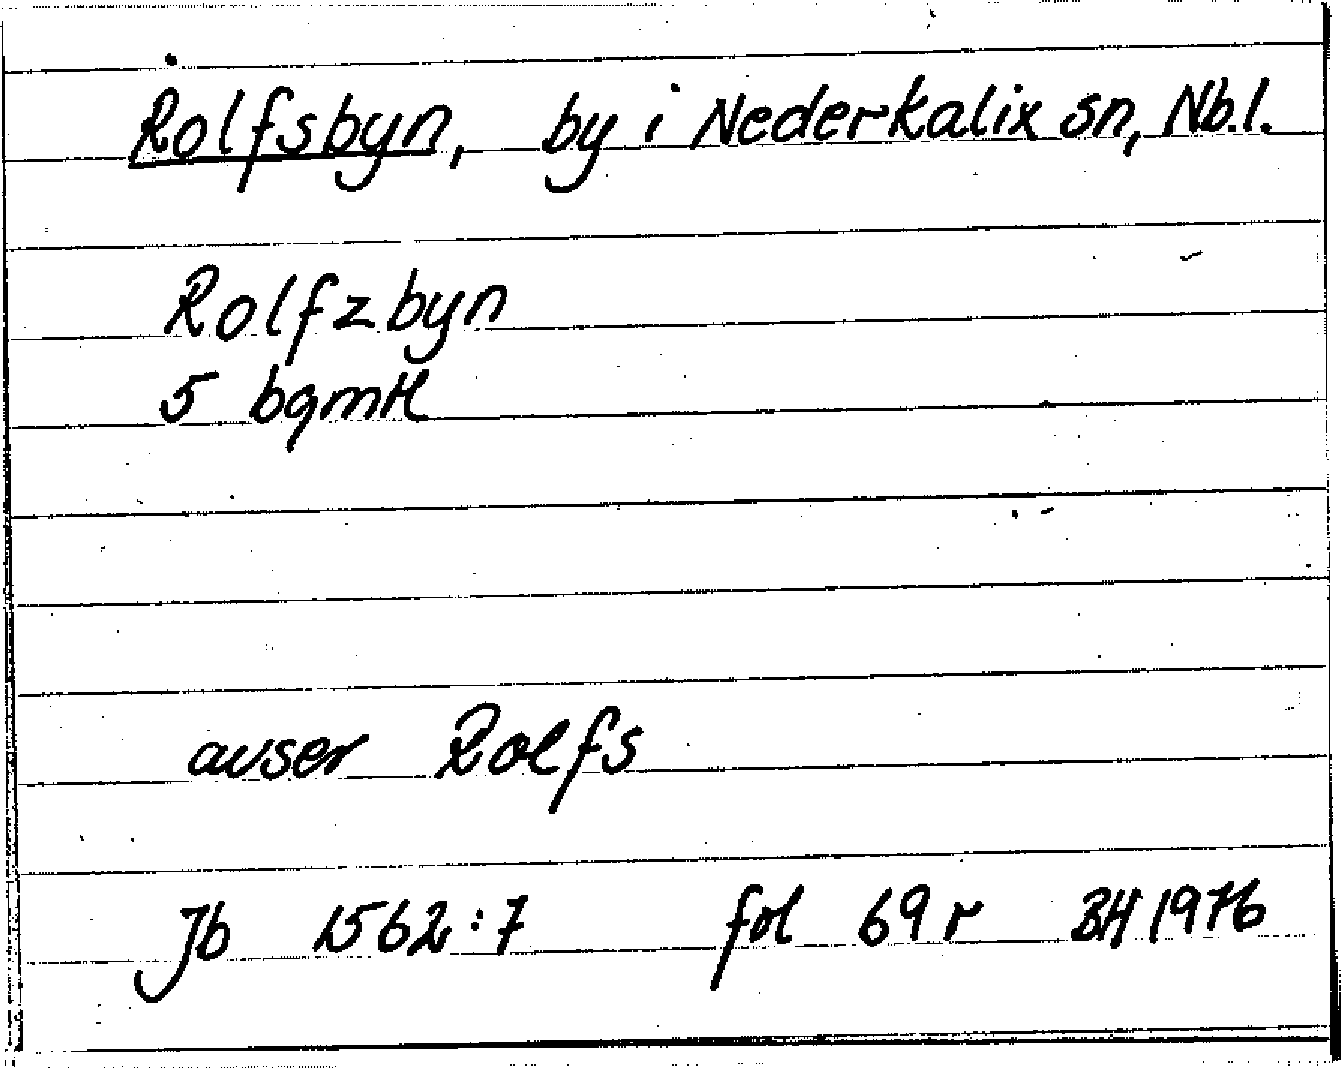 Rolfsbyn, by i Nederkalix sn, Nb.l.
Rolfzbyn
5 bgmtl
avser Rolfs
Jb 1562:7 fol 69 r BH 1976